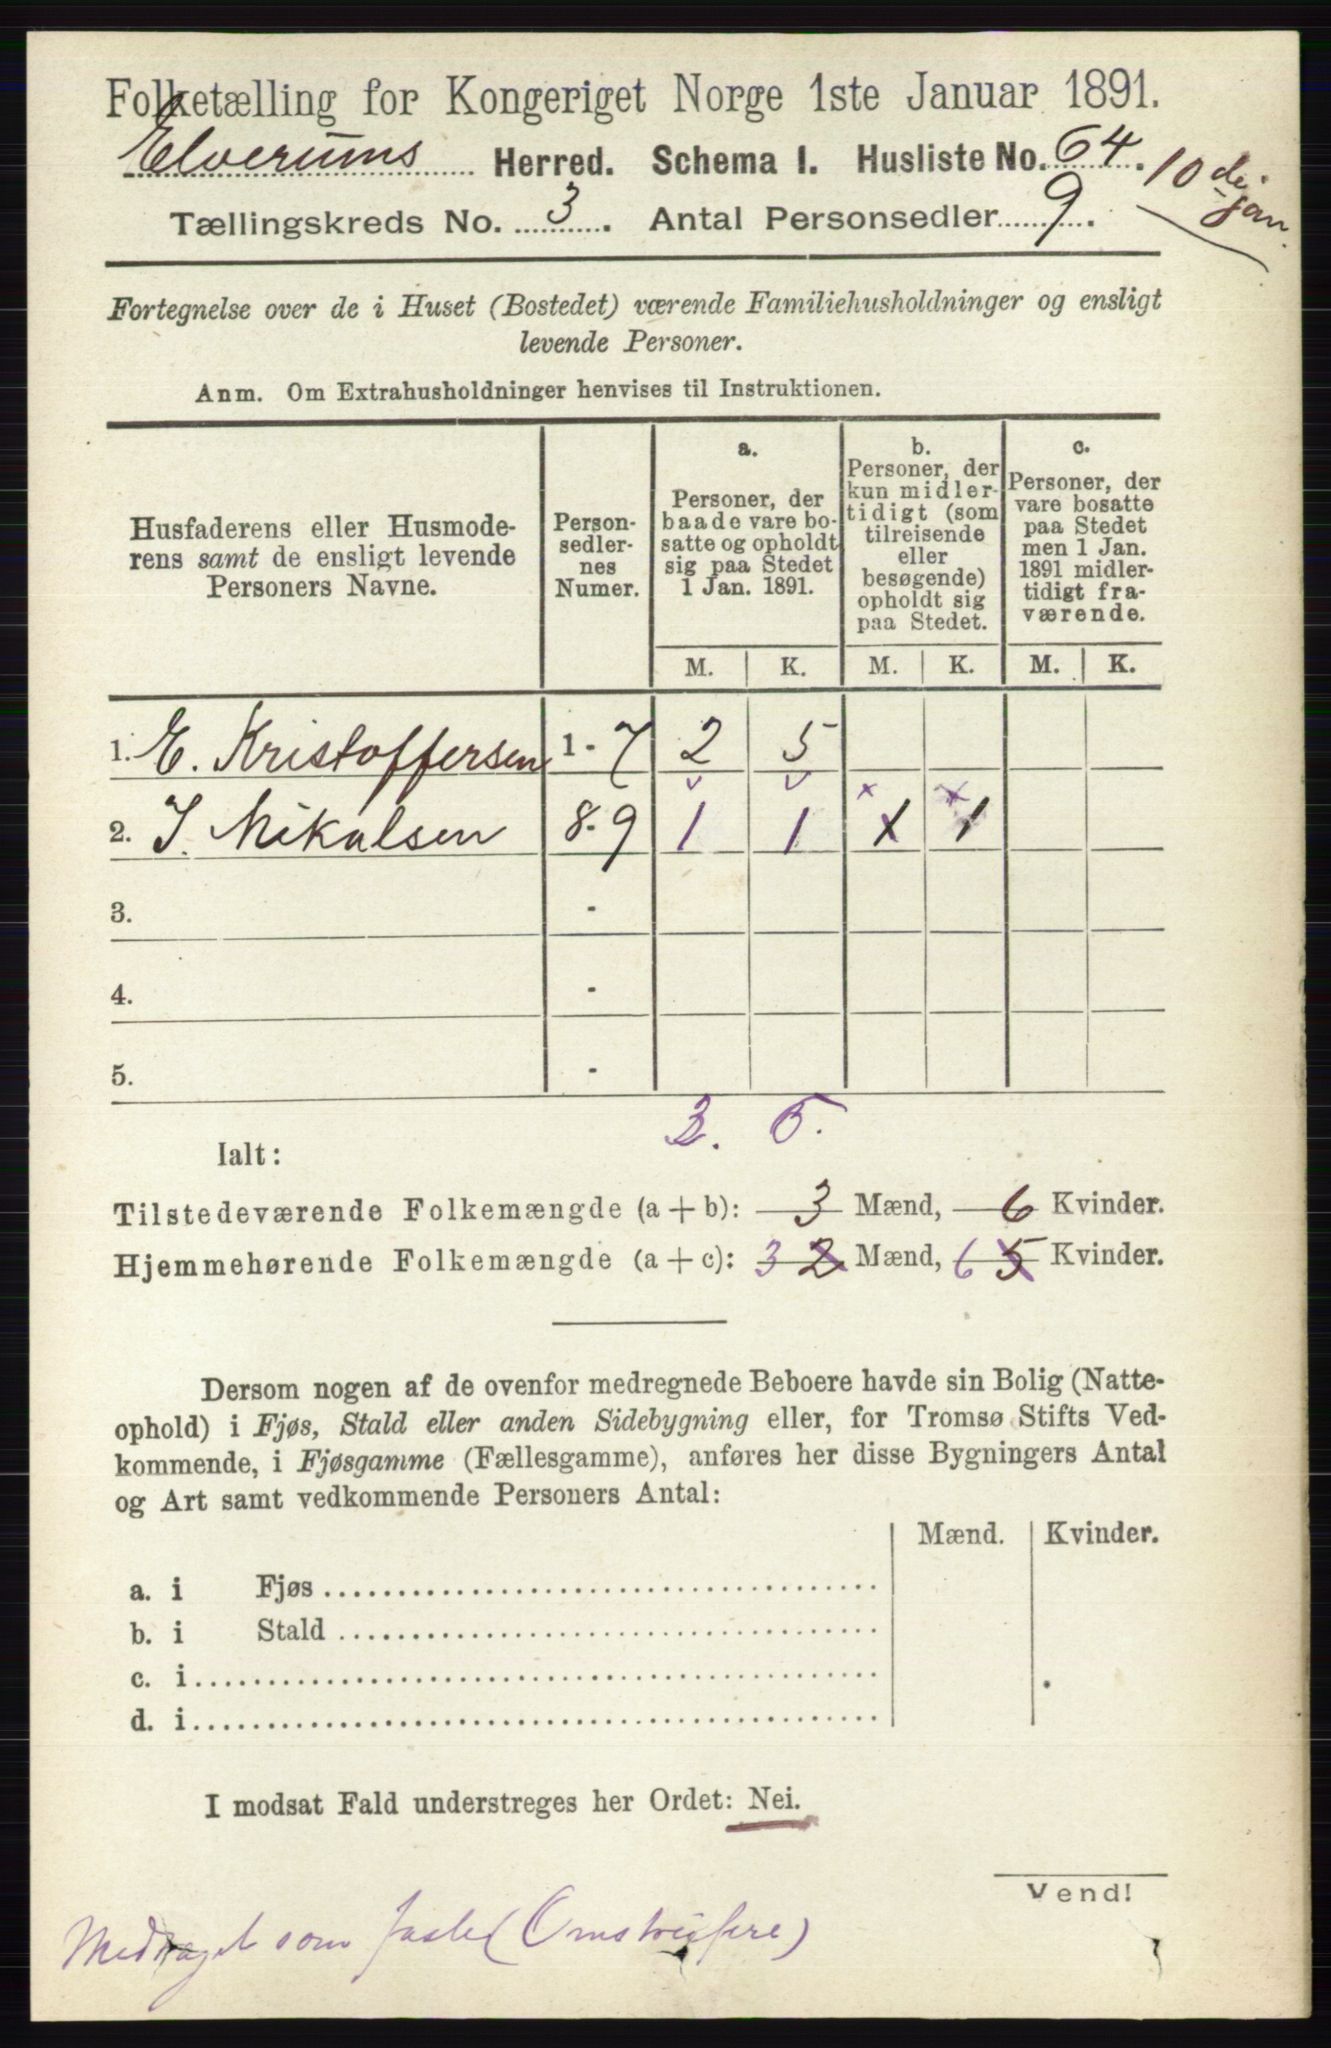 Folketælling for Kongeriget Norge 1ste Januar 1891.
Elverums Herred. Schema I. Husliste No. 64.
10de jan.
Tællingskreds No. 3. Antal Personsedler 9.
Fortegnelse over de i Huset (Bostedet) værende Familiehusholdninger og ensligt
levende Personer.
Anm. Om Extrahusholdninger henvises til Instruktionen.
Husfaderens eller Husmode-
rens samt de ensligt levende
Personers Navne.
Person-
sedler-
nes
Numer.
a.
Personer, der
baade vare bo-
satte og opholdt
sig paa Stedet
1 Jan. 1891.
b.
Personer, der
kun midler-
tidigt (som
tilreisende
eller
besøgende)
opholdt sig
paa Stedet.
c.
Personer, der
vare bosatte
paa Stedet
men 1 Jan.
1891 midler-
tidigt fra-
værende.
M. K. M. K. M. K.
1. E. Kristoffersen 1-7 2 5
2. J. Mikalsen 8-9 1 1 1 1
3. -
4. -
5. -
Ialt:
Tilstedeværende Folkemængde (a + b): 3 Mænd, 6 Kvinder.
Hjemmehørende Folkemængde (a + c): 3 2 Mænd, 6 5 Kvinder.
Dersom nogen af de ovenfor medregnede Beboere havde sin Bolig (Natte-
ophold) i Fjøs, Stald eller anden Sidebygning eller, for Tromsø Stifts Ved-
kommende, i Fjøsgamme (Fællesgamme), anføres her disse Bygningers Antal
og Art samt vedkommende Personers Antal:
Mænd. Kvinder.
a. i Fjøs
b. i Stald
c. i
d. i
I modsat Fald understreges her Ordet: Nei.
Vend!
Medtaget som faste (Omstreifere)